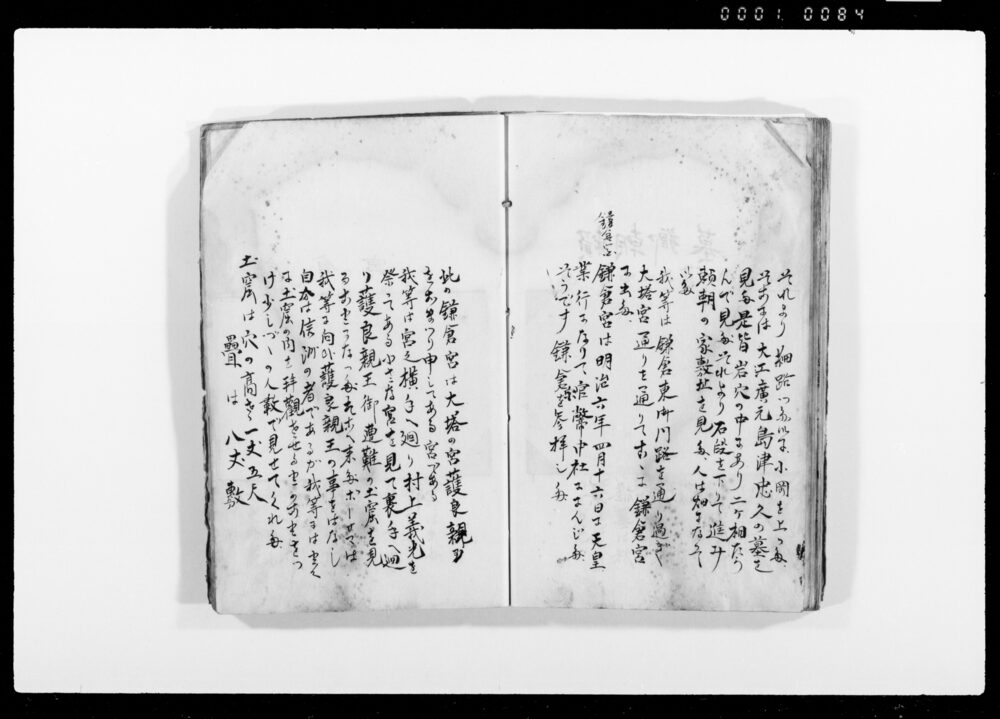 0001 0084
それより細路つたひに小岡を上つた
そこには大江廣元島津忠久の墓を
見た是皆岩穴の中にあり二ヶ相なら
んで見たそれより石段を下って進み
頼朝の家敷址を見た人は畑になって
我等は鎌倉東御門路を通り過ぎ
大塔宮通りを通りてすぐ鎌倉宮
に出た
鎌倉宮
鎌倉宮は明治六年四月十六日に天皇
行になりて官幣中社になんじた
そうです鎌倉を参拝した
此の鎌倉宮は大塔の宮護良親王
をおまつり申してある宮である
我等は宮之横手へ廻り村上義光を
祭てある小さな宮を見て裏手へ廻
り護良親王御遭難の土窟を見
る
我等に向ひ護良親王の事をはなし
自分は信洲の者であるが我等には
な土窟の内を拝觀させる
け少しづゝの人數で見せてくれた
土窟は穴の高さ一丈五尺
疊は八丈敷